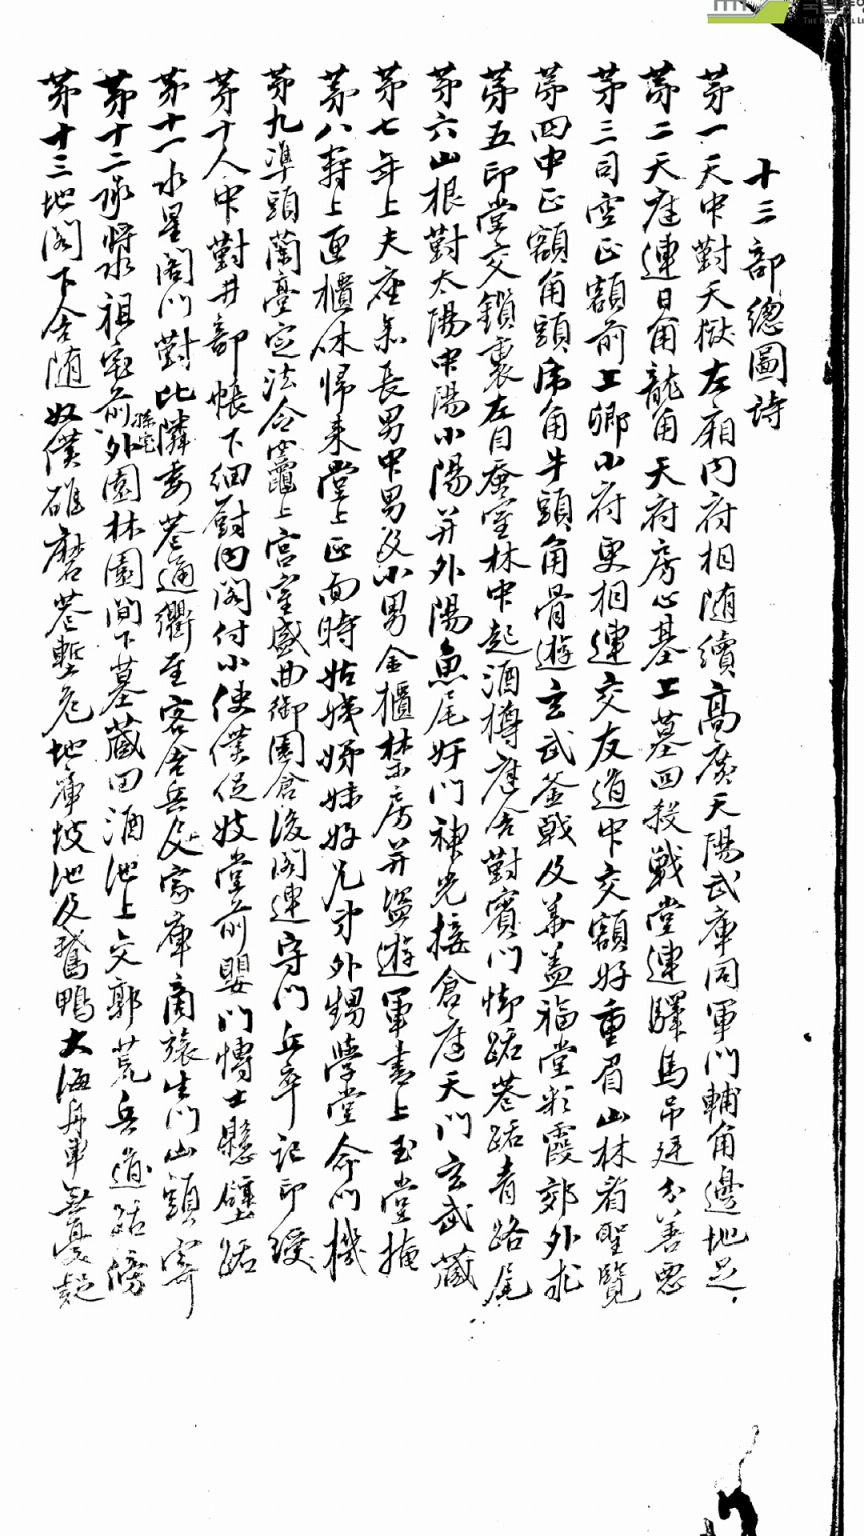 十三部總圖詩
第一天中對天獄左廂內府相随續高廣天陽武庫同軍門輔角邊地足
第二天庭連日角龍角天府房心基上墓四殺戦堂連驛馬吊廷分善惡
第三司空正額前上卿小府更相連交友道中交額好重眉山林看聖覽
第四中正額角頭席角牛頭角骨遊玄武釜戟及華盖福堂彩霞郊外求
第五印堂交鎖裏左目蚕室林中起酒樽庭舍對賓門街路巷路青路尾
第六山根對太陽中陽小陽并外陽魚尾奸門神光接倉庭天門玄武藏
第七年上夫座叅長男中男及小男金櫃禁房并盜遊軍書上玉堂掩
第八壽上匣櫃休帰来堂上正面時姑姨姊妹好兄弟外甥學堂命門機
第九準頭蘭臺定法令竈上宮室盛典御園倉後閣連守門兵卒記印綬
第十人中對井部帳下細廚內閣付小使僕從妓堂前嬰門博士懸壁路
第十一水星閣門對比隣委巷通衢至客舍兵及家庫商旅生門山頭寄
第十二承將水祖宅前孫宅外園林園間下墓藏田酒池上交郭荒兵道路傍
第十三地閣下舍随奴僕碓磨巷塹危地庫坡池及鵞鴨大海舟車無憂疑
THE NATIONAL LI